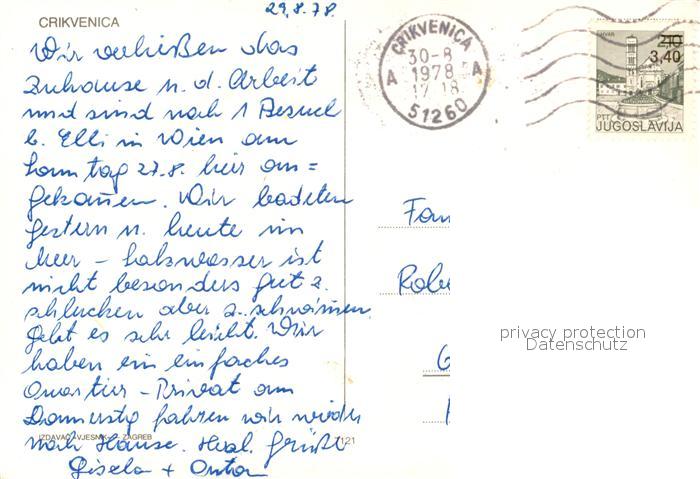 29.8.78.
CRIKVENICA
Wir verließen das
Zuhause n. d. Arbeit
und sind nach 1 Besuch
b. Elli in Wien am
Sonntag 27.8. hier an=
gekommen. Wir badeten
gestern u. heute im
Meer – Salzwasser ist
nicht besonders gut z.
schlucken aber z. schwimmen
geht es sehr leicht. Wir
haben ein einfaches
Quartier – Privat am
Donnerstg fahren wir wieder
nach Hause. Herzl. Grüße
Gisela + Anton
IZDAVAČ »VJESNIK« ZAGREB
7121
CRIKVENICA
30-8
1978
A A
17-18
51260
HVAR
2,10
3,40
PTT
JUGOSLAVIJA
Fam
Robe
privacy protection
Datenschutz